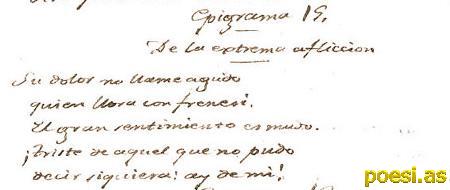 Epigrama 15.
De la extrema afliccion
Su dolor no llame agudo
quien llora con frenesí.
El gran sentimiento es mudo.
¡triste de aquel que no pudo
decir siquiera: ay de mi!
poesi.as